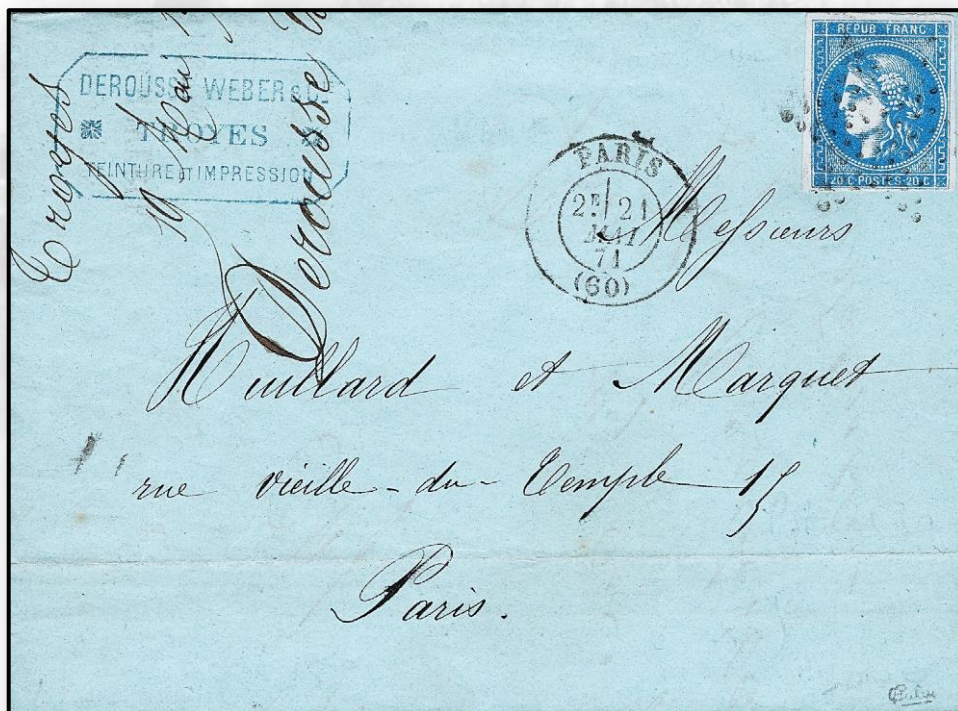 Troyes
19 Mai
Derousse
DEROUSSE WEBER & Cie
TROYES
TEINTURE ET IMPRESSION
REPUB FRANC
20 C POSTES 20 C
PARIS
2E/21
MAI
71
(60)
Messieurs
Huillard et Marquet
rue vieille-du-Temple 15
Paris.